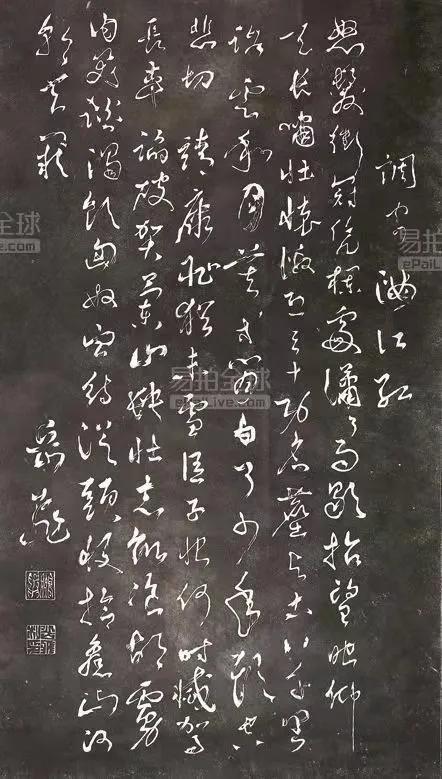 調寄滿江紅
怒髮衝冠凭欄處瀟々雨歇抬望眼仰
天長嘯壯懷激烈三十功名塵與土八千里
路雲和月莫等閒白了少年頭空
悲切靖康恥猶未雪臣子恨何時滅駕
長車踏破賀蘭山缺壯志飢餐胡虜
肉笑談渴飲匈奴血待從頭收拾舊山河
朝天闕
岳飛
易拍全球
ePaiLive.com